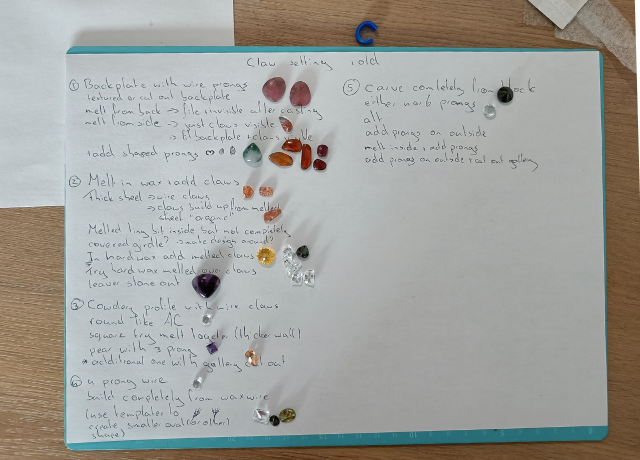 Claw setting
① Backplate with wire prongs
textured or cut out backplate
melt from back → file invisible after casting
melt from side → just claws visible
→ backplate + claws visible
+ add shaped prongs
② Melt in wax + add claws
Thick sheet → wire claws
→ claws build up from melted
sheet "organic"
Melted tiny bit inside but not completely
covered girdle? → make design around?
In hard wax add melted claws
Try hard wax melted over claws
leave stone out
③ Cowdery profile with wire claws
round like AC
square try melt together (thicker wall)
pear with 3 prong
* additional one with gallery cut out
④ u prong wire
build completely from wax wire
(use templates to
create smaller oval (or other)
shape)
⑤ carve completely from block
either work prongs
alt
add prongs on outside
melt inside + add prongs
add prongs on outside + cut out gallery